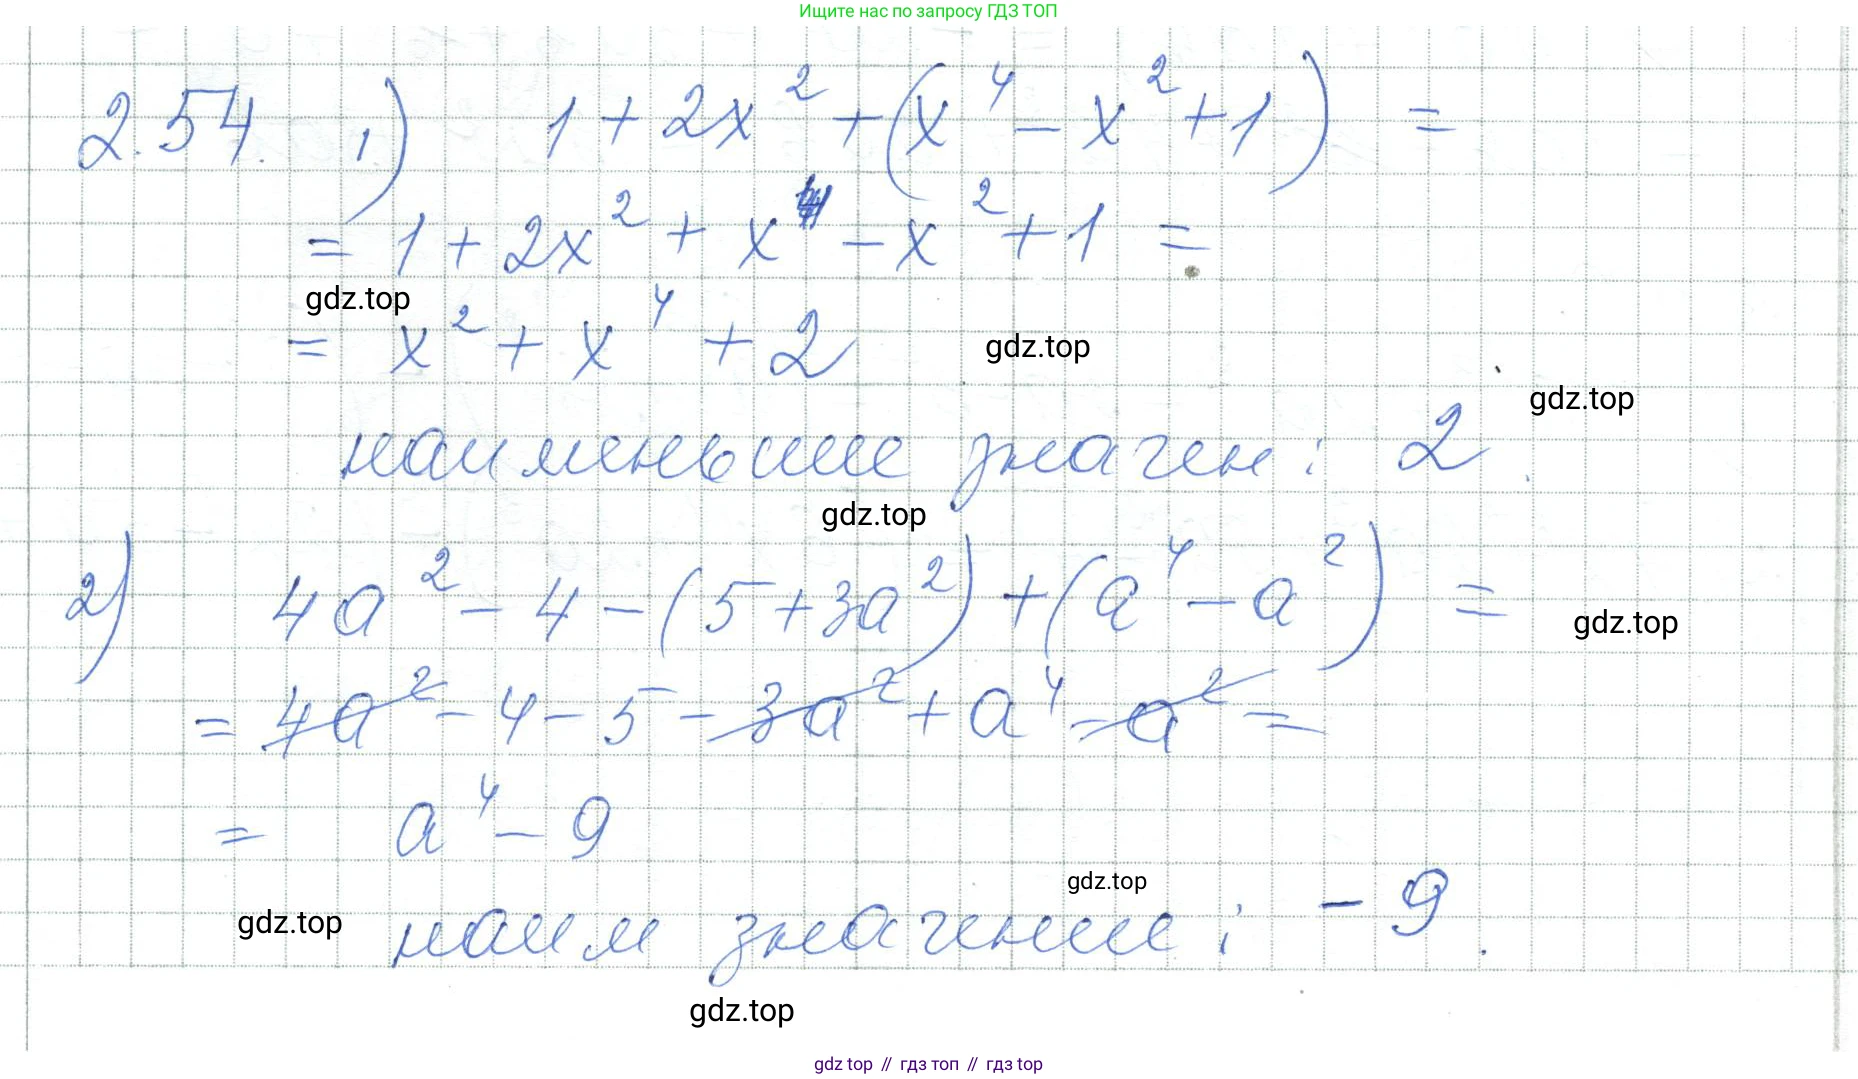 Ищите нас по запросу ГДЗ ТОП
2.54 1) 1 + 2x² + (x⁴ - x² + 1) =
= 1 + 2x² + x⁴ - x² + 1 =
gdz.top
= x² + x⁴ + 2
gdz.top
gdz.top
наименьшее значен: 2.
gdz.top
2) 4a² - 4 - (5 + 3a²) + (a⁴ - a²) =
gdz.top
= 4a² - 4 - 5 - 3a² + a⁴ - a² =
= a⁴ - 9
gdz.top
gdz.top
наим значение: - 9.
gdz.top
gdz top // гдз топ // гдз top